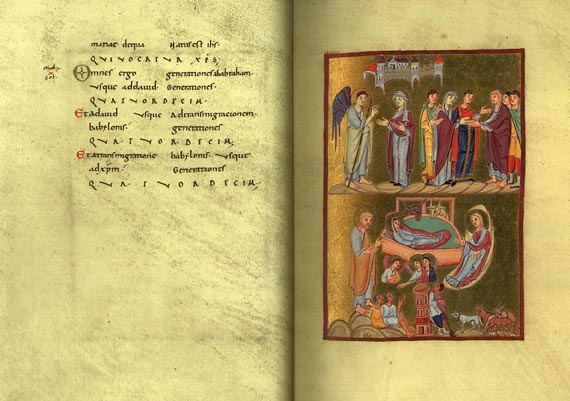 mariae dequa Natus est ihs.
QVI VOCATUR XPS
Omnes ergo generationes ab abraham
usque ad david Generationes
QVATVORDECIM.
Et a david usque Ad transmigrationem
babylonis generationes
QVATVORDECIM;
Et a transmigratione babylonis usque
ad xpm Generationes
QVATVORDECIM;